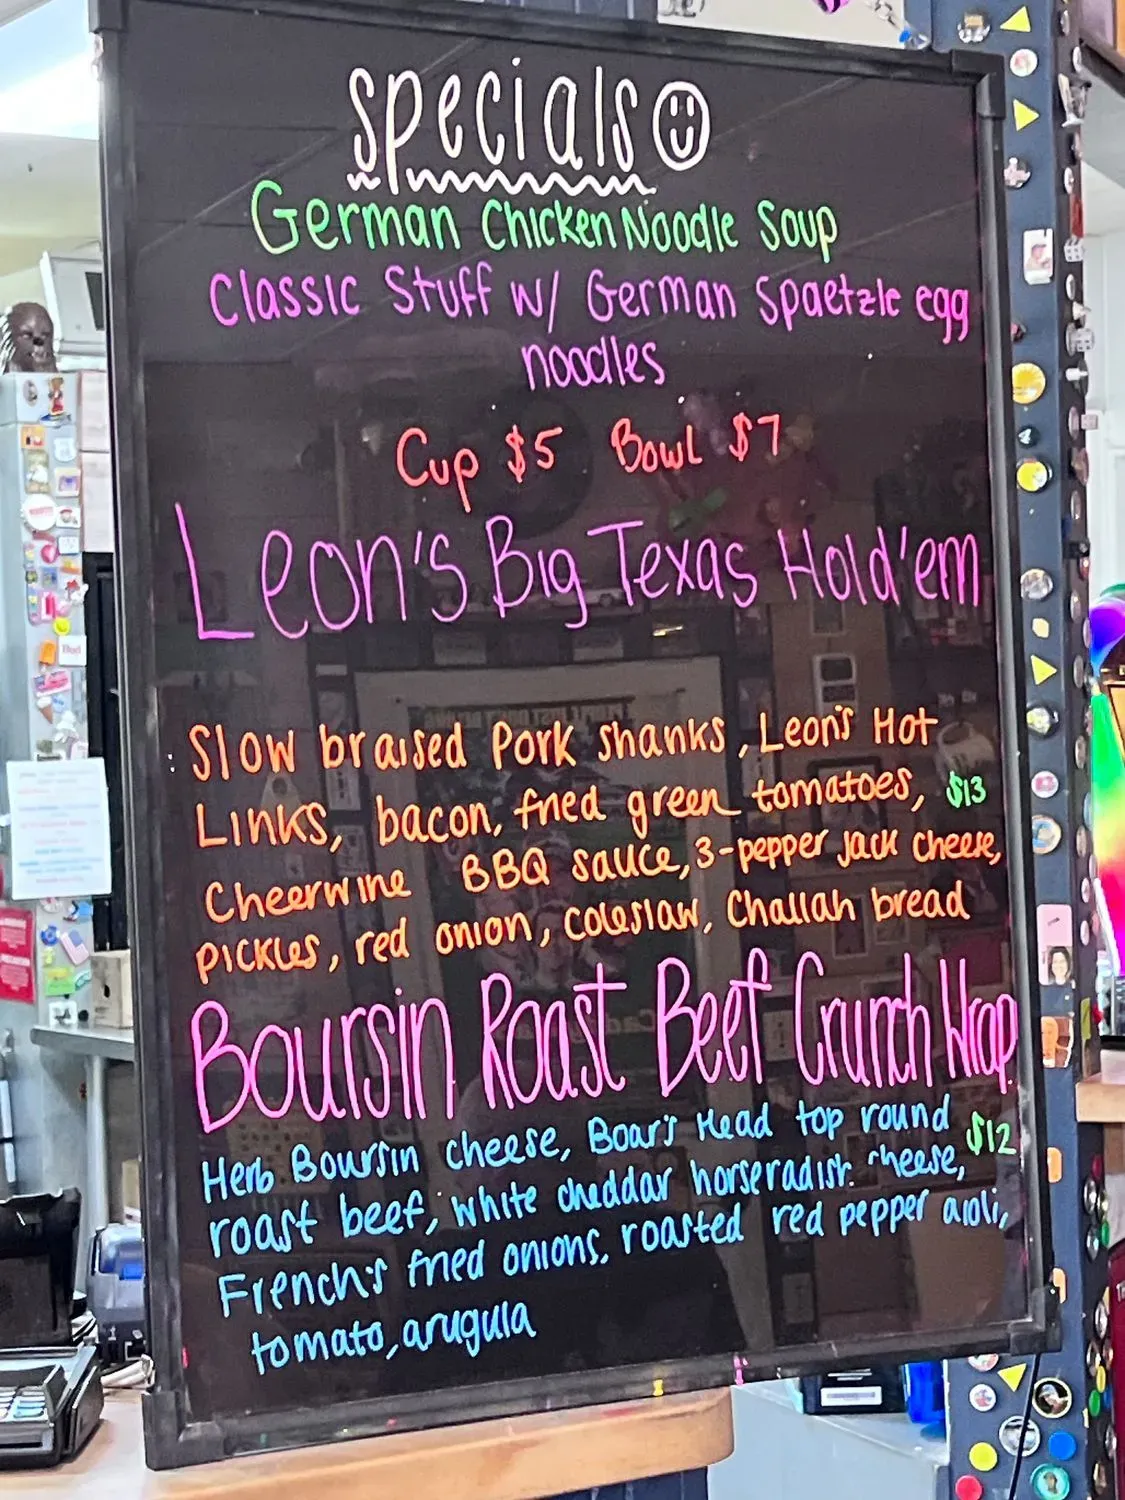 specials
German Chicken Noodle Soup
Classic Stuff w/ German Spaetzle egg
noodles
Cup $5 Bowl $7
Leon's Big Texas Hold'em
Slow braised Pork shanks, Leon's Hot
Links, bacon, fried green tomatoes, $13
Cheerwine BBQ sauce, 3-pepper jack cheese,
pickles, red onion, coleslaw, Challah bread
Boursin Roast Beef Crunch Wrap
Herb Boursin cheese, Boar's Head top round $12
roast beef, white cheddar horseradish cheese,
French's fried onions, roasted red pepper aioli,
tomato, arugula